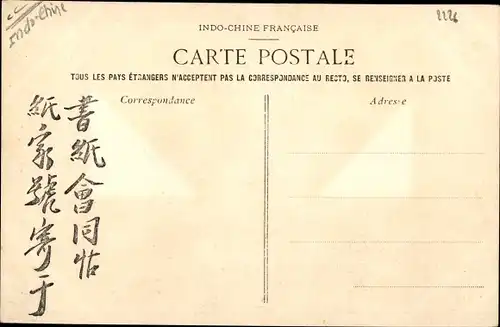 Indo-Chine
2226
INDO-CHINE FRANÇAISE
CARTE POSTALE
TOUS LES PAYS ÉTRANGERS N'ACCEPTENT PAS LA CORRESPONDANCE AU RECTO, SE RENSEIGNER A LA POSTE
Correspondance
Adresse
書紙會同帖
紙家號寄于